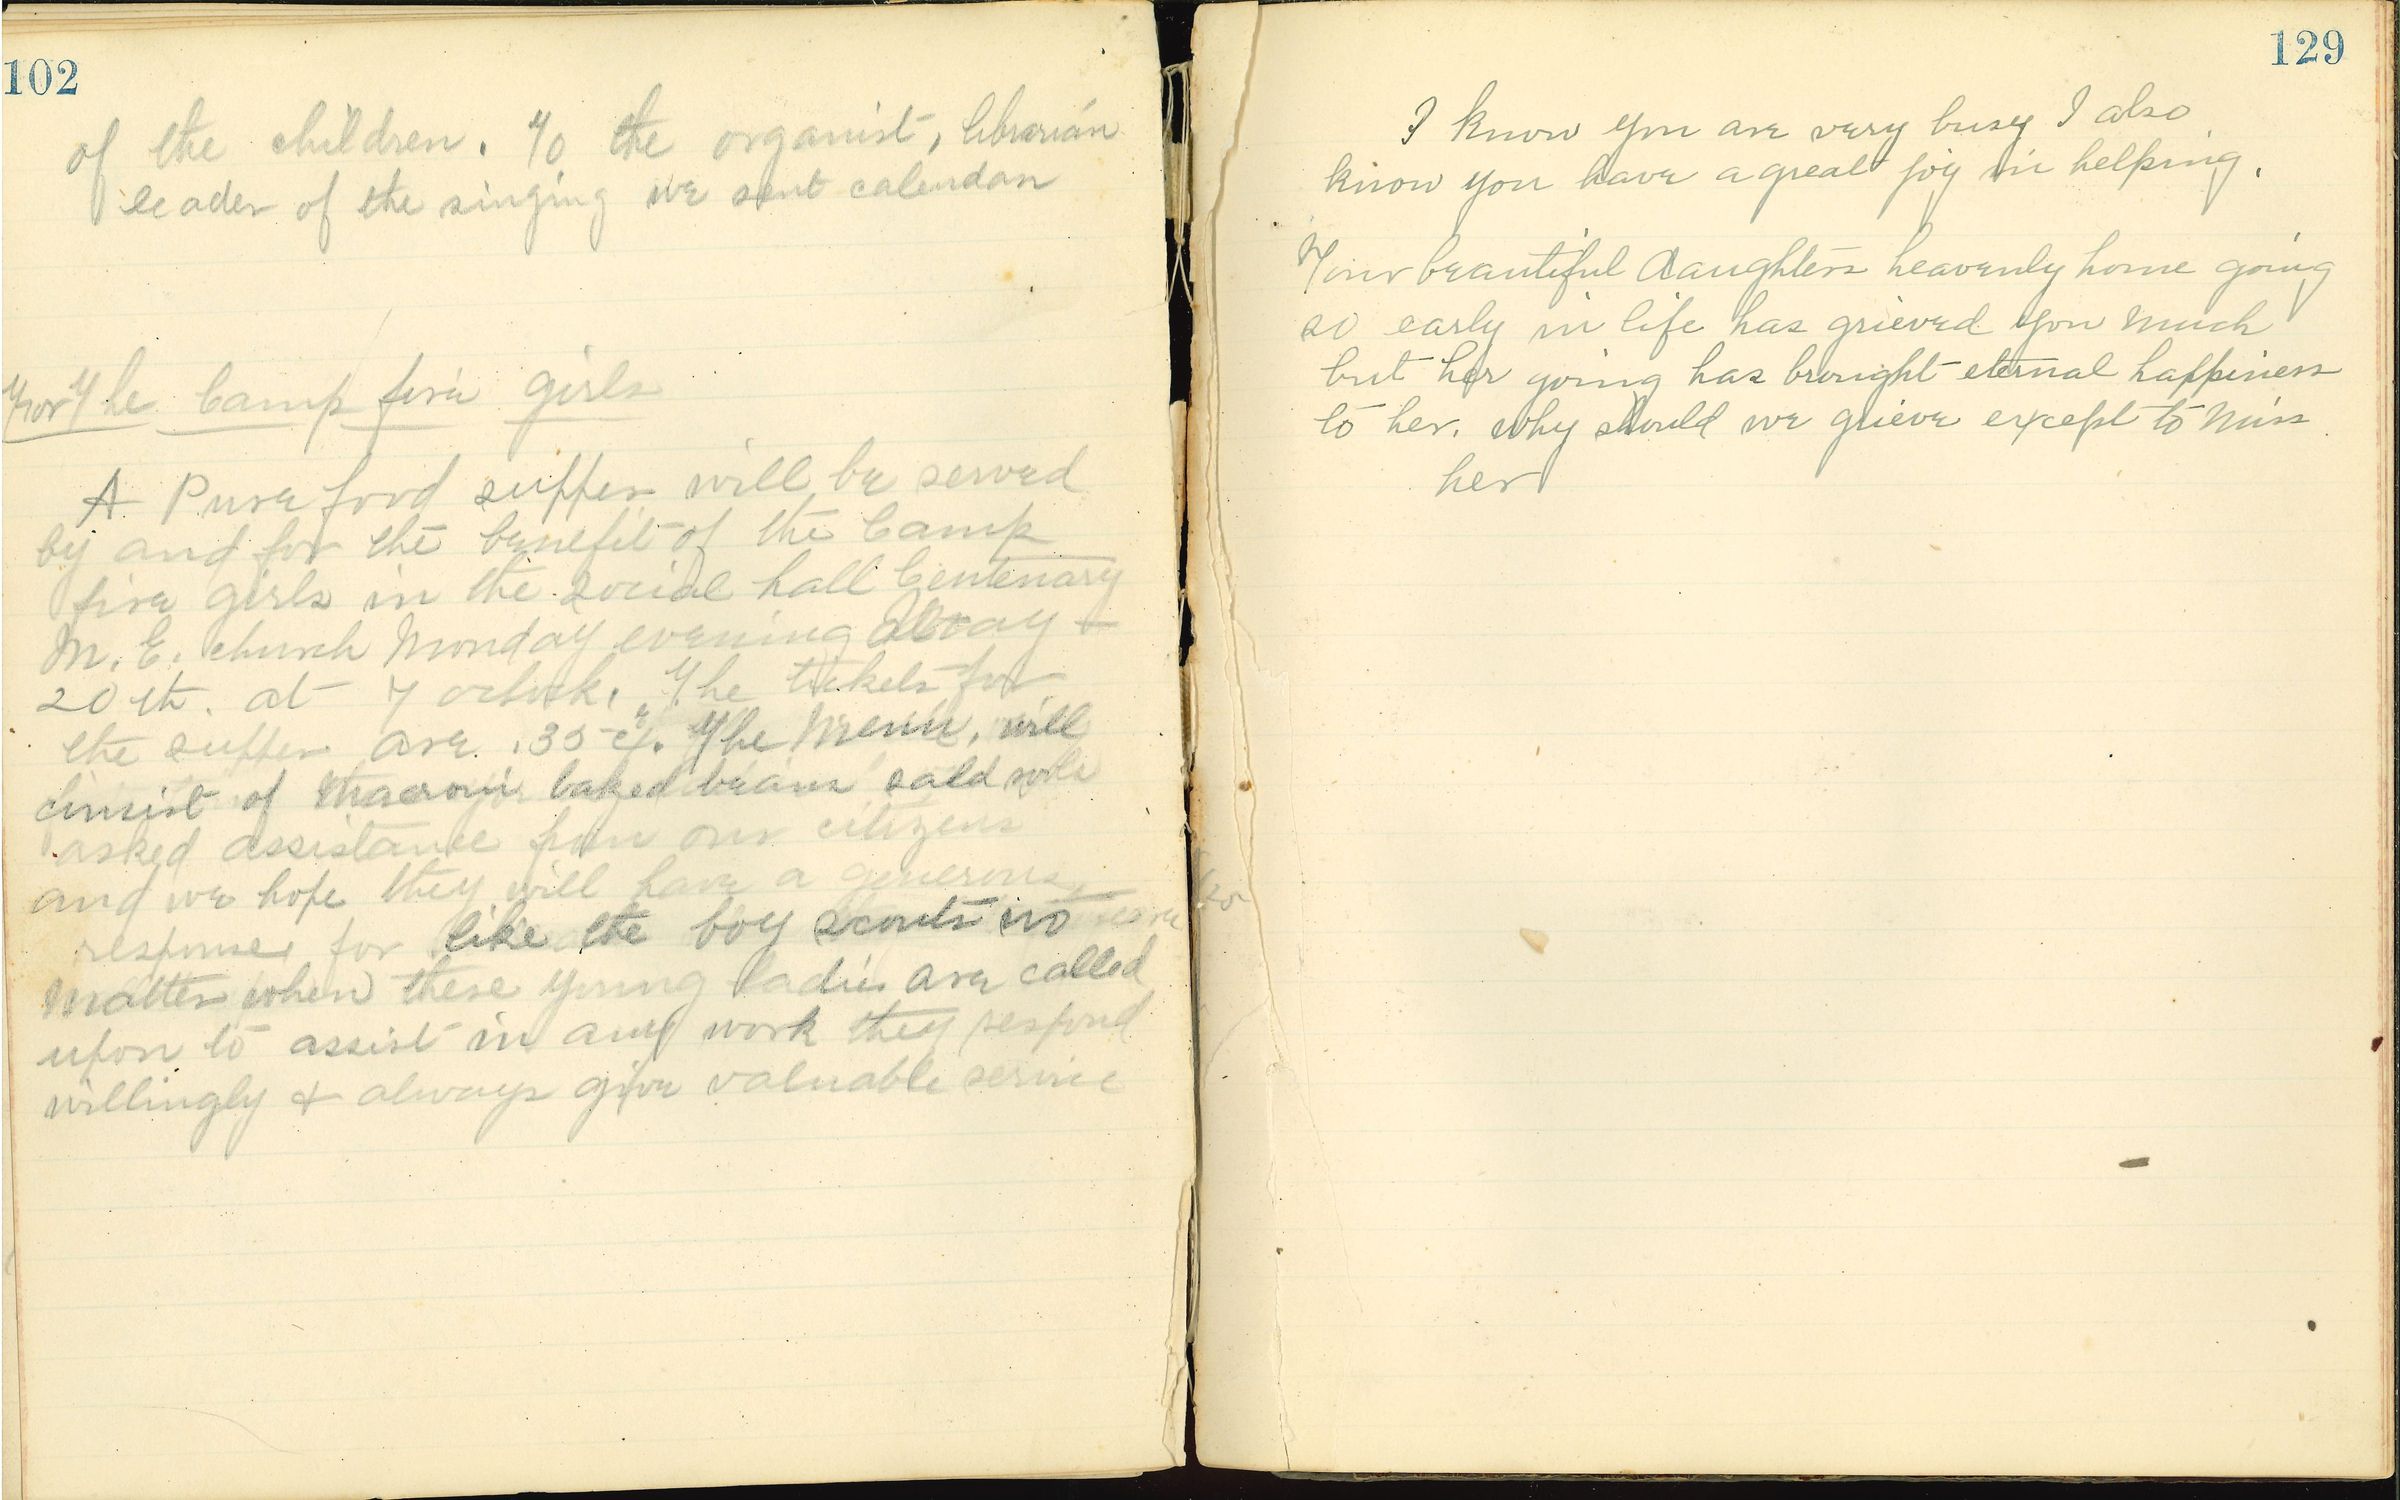 102
of the children. To the organist, librarian
leader of the singing we sent calendars
For The Camp fire girls
A Pure food supper will be served
by and for the benefit of the Camp
fire girls in the social hall Centenary
M. E. church Monday evening May
20th. at 7 oclock. The tickets for
the supper are .35 ¢. The Menu, will
consist of Macroni baked beans salad rolls
asked assistance from our citizens
and we hope they will have a generous
response, for like the boy scouts no
matter when these young ladies are called
upon to assist in any work they respond
willingly & always give valuable service
129
I know you are very busy I also
know you have a great joy in helping.
Your beautiful daughters heavenly home going
so early in life has grieved you much
but her going has brought eternal happiness
to her. why should we grieve except to miss
her